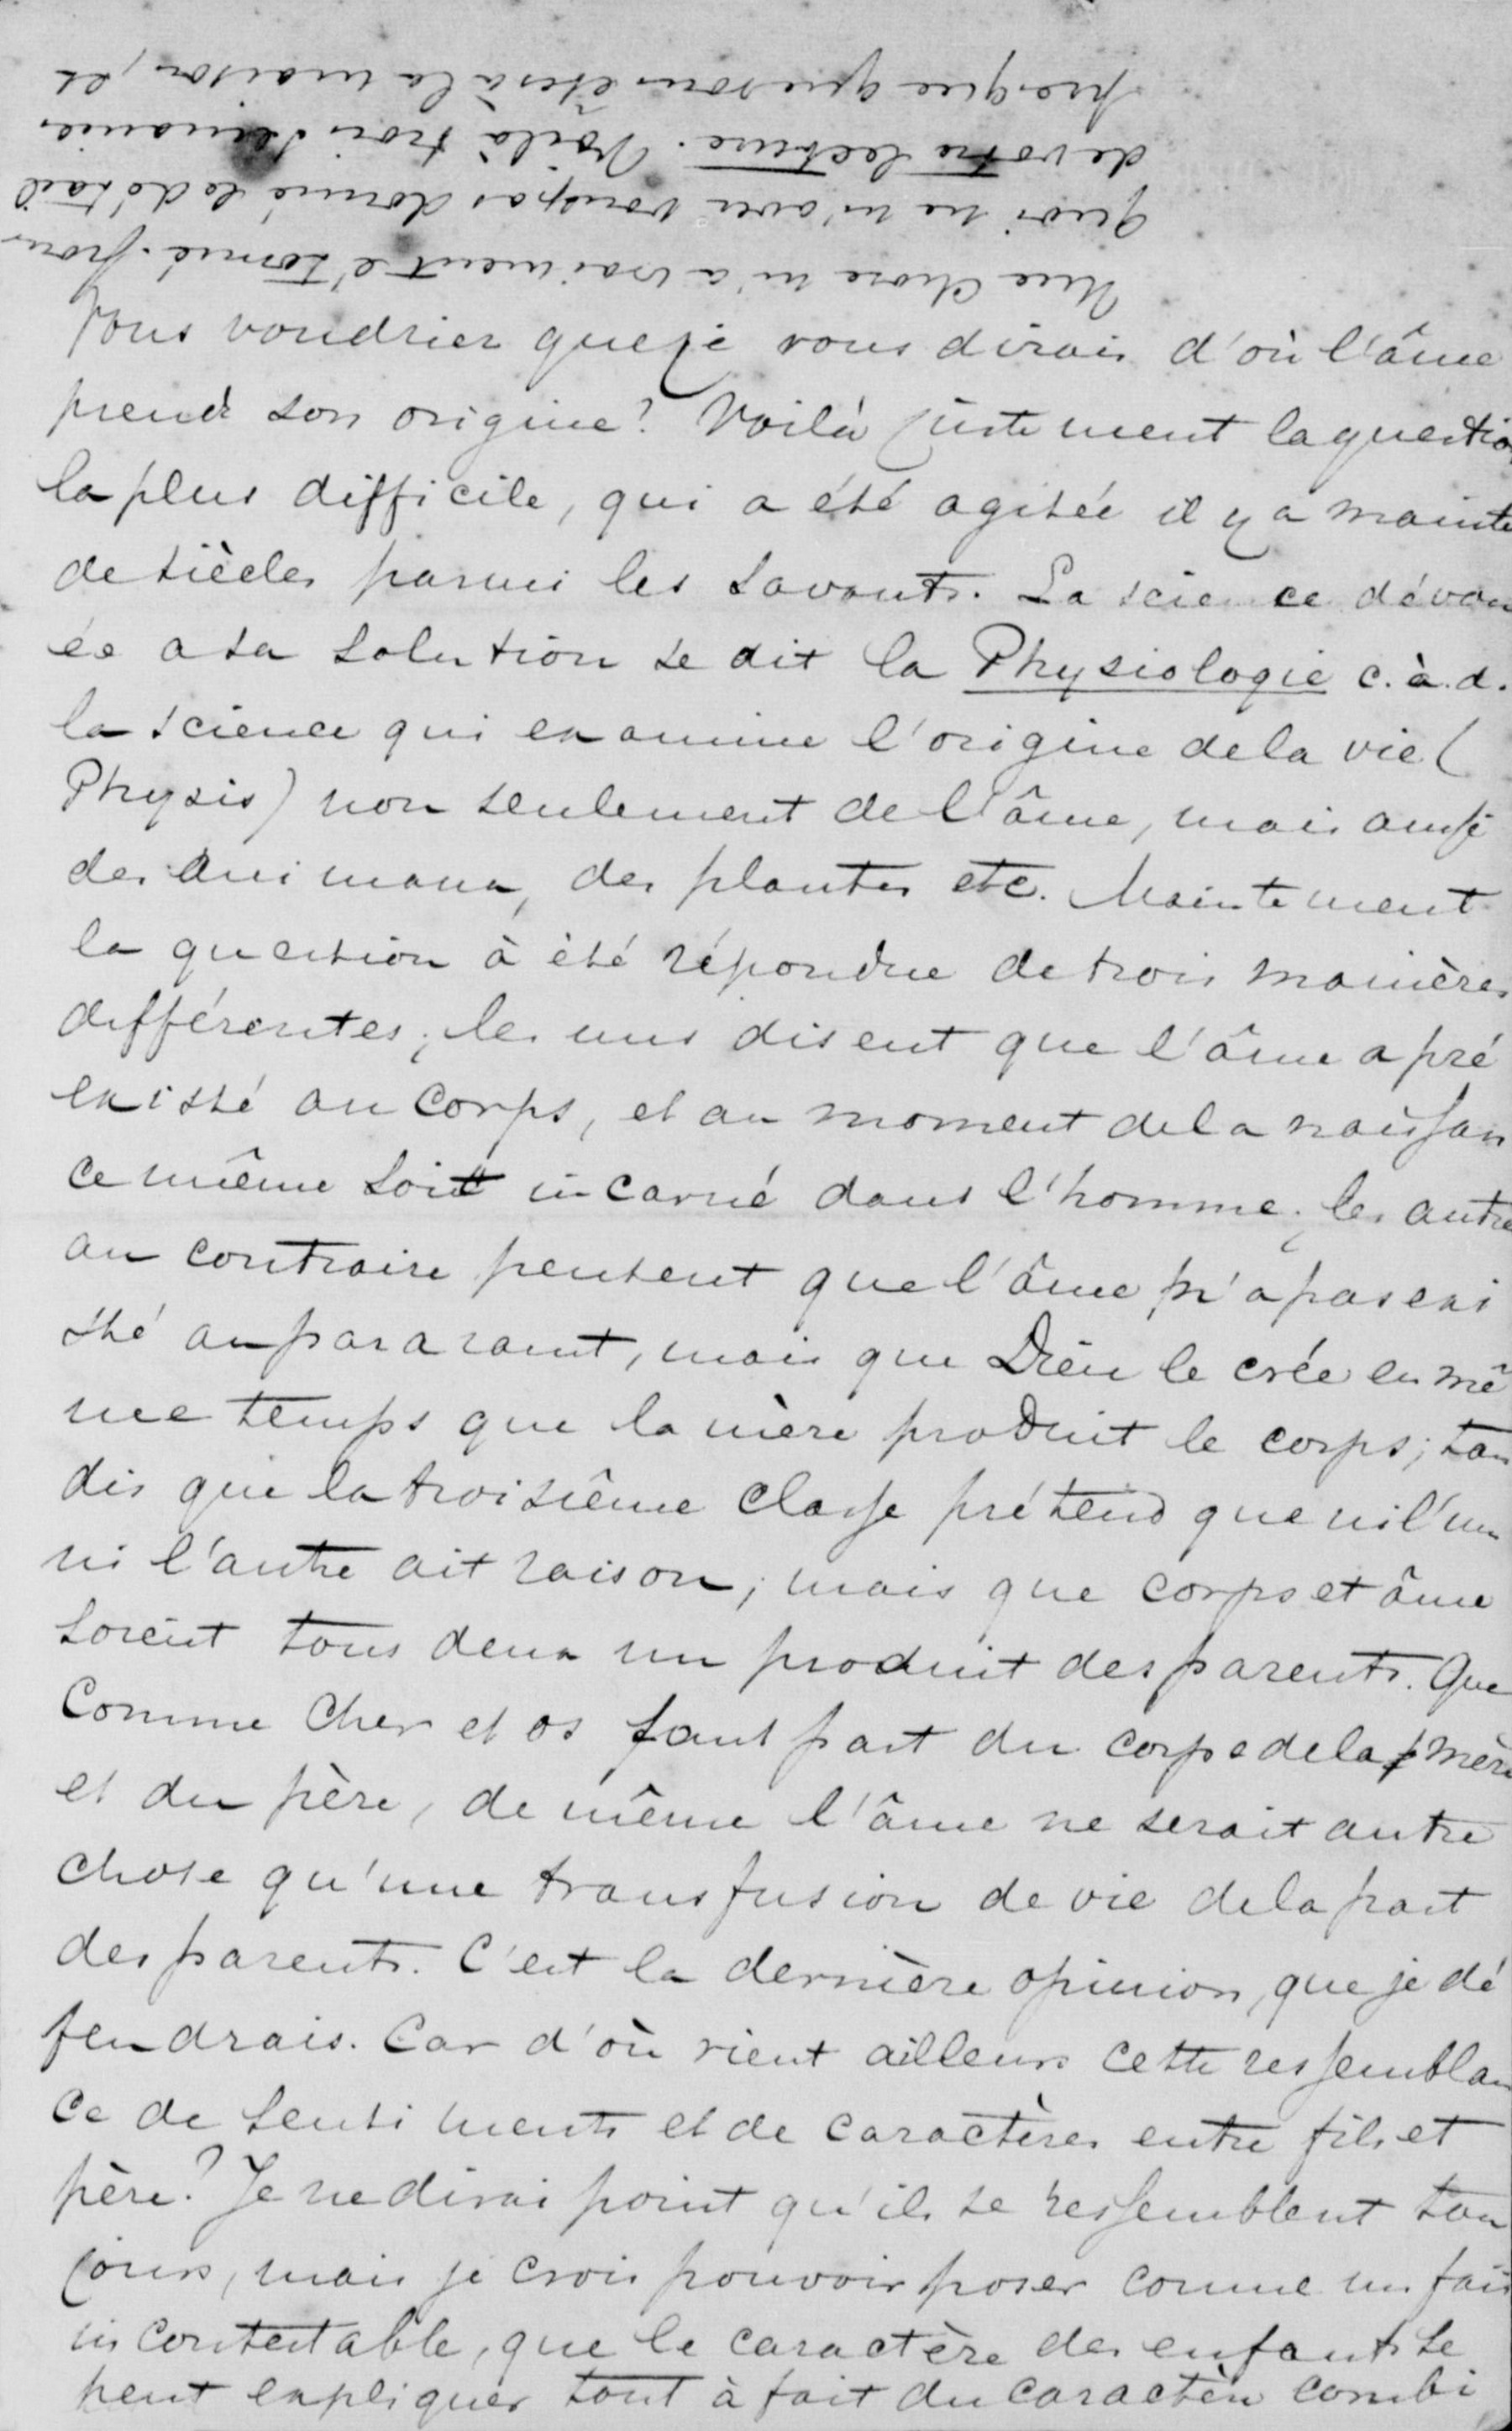 Une chose m'a vraiment étonné. Pour
quoi ne m'avez vous pas donné le détail
de votre lecture. Voilà trois semaines
presque que vous êtes à la maison, et
Vous voudriez que je vous dirais d'où l'âme
prend son origine? Voilà justement la question
la plus difficile, qui a été agitée il y a mainte
de siècles parmi les savants. La science dévou
ée a sa solution se dit la Physiologie c.à.d.
la science qui examine l'origine de la vie (
Physis) non seulement de l'âme, mais aussi
des animaux, des plantes etc. Maintement
la question à été répondue de trois manières
différentes; les uns disent que l'âme a pré
existé au corps, et au moment de la naissan
ce même soit incarné dans l'homme; les autre
au contraire pensent que l'âme n'a pas exi
sté auparavant, mais que Dieu le crée en mê
me temps que la mère produit le corps; tan
dis que la troisième classe prétend que ni l'un
ni l'autre ait raison; mais que corps et âme
soient tous deux un produit des parents. Que
Comme cher et os font part du corps de la mère
et du père, de même l'âme ne serait autre
chose qu'une transfusion de vie de la part
des parents. C'est la dernière opinion, que je dé
fendrais. Car d'où vient ailleurs cette ressemblan
ce de sentiments et de caractères entre fils et
père? Je ne dirai point qu'ils se ressemblent tou
jours, mais je crois pouvoir poser comme un fait
incontestable, que le caractère des enfants se
peut expliquer tout à fait du caractère combi